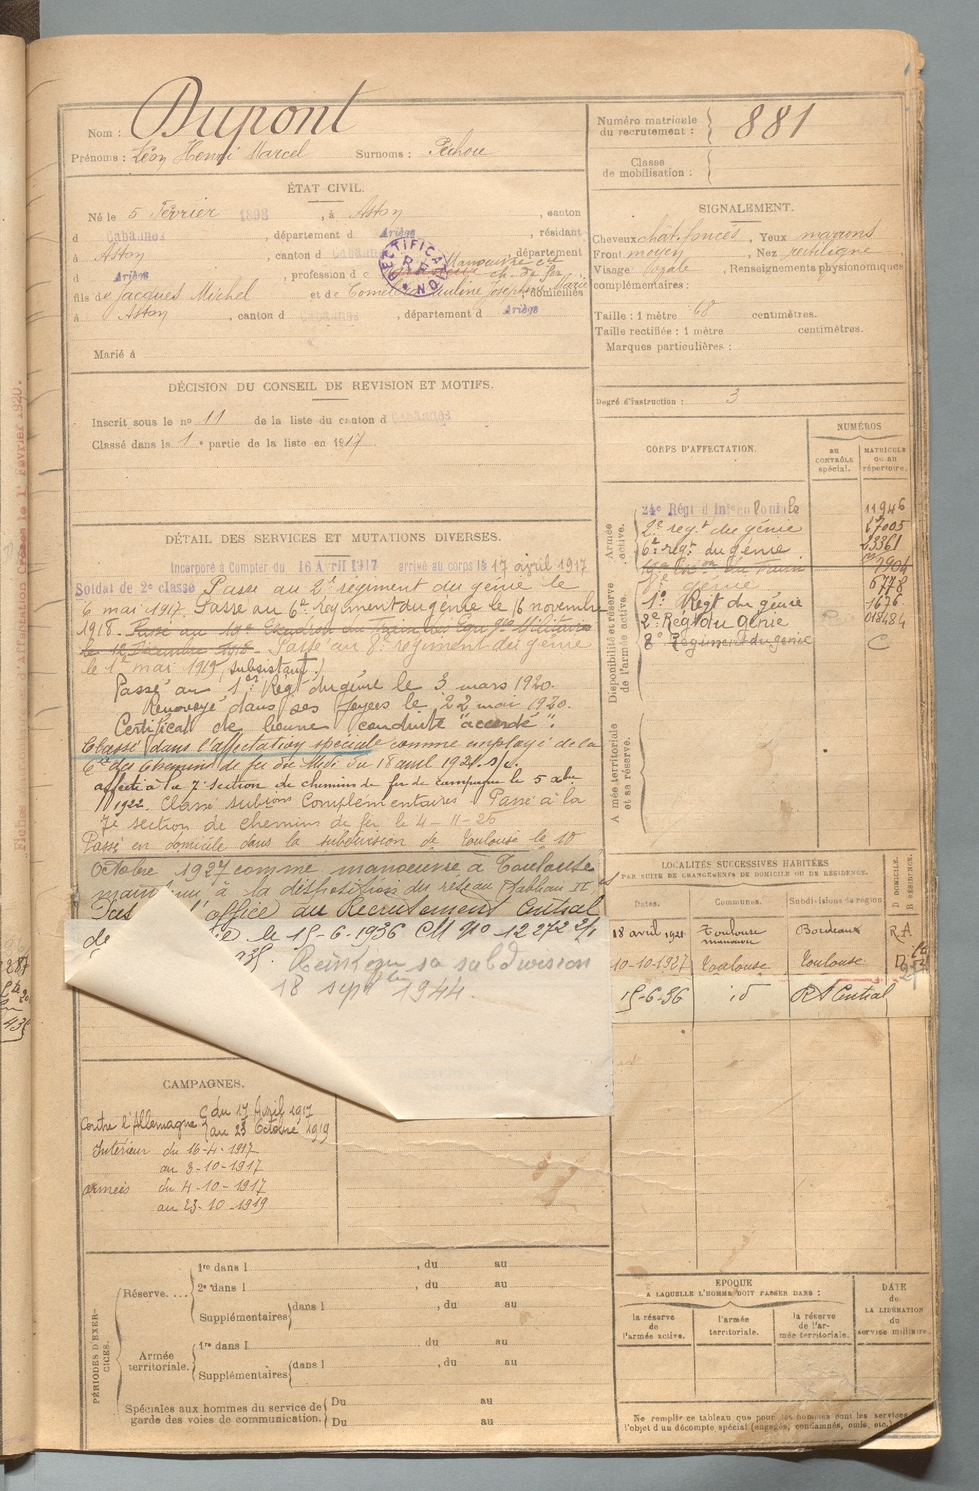 Nom : Dupont
Prénoms : Léon Henri Marcel Surnoms : Pechou
Numéro matricule du recrutement : 881
Classe de mobilisation :
ÉTAT CIVIL.
Né le 5 Février 1898, à Aston, canton
d Cabannes, département d Ariège, résidant
à Aston, canton d Cabannes, département
d Ariège, profession de Manœuvre ch. de fer
fils de Jacques Michel et de Pauline Joséphine Marie, domiciliés
à Aston, canton d Cabannes, département d Ariège
Marié à
RECTIFICATION
R.F.
SIGNALEMENT.
Cheveux chat. foncés, Yeux marrons
Front moyen, Nez rectiligne
Visage ovale, Renseignements physionomiques
complémentaires :
Taille : 1 mètre 68 centimètres.
Taille rectifiée : 1 mètre centimètres.
Marques particulières :
Degré d'instruction : 3
DÉCISION DU CONSEIL DE REVISION ET MOTIFS.
Inscrit sous le no 11 de la liste du canton d Cabannes
Classé dans la 1e partie de la liste en 1917
DÉTAIL DES SERVICES ET MUTATIONS DIVERSES.
Incorporé à Compter du 16 Avril 1917 arrivé au corps le 17 avril 1917
Soldat de 2e classe Passe au 2e régiment du génie le
6 mai 1917. Passe au 6e régiment du génie le 16 novembre
1918. Passé au 19e Escadron du Train des Equipages Militaires
le 12 Décembre 1918. Passé au 8e régiment du génie
le 1er mai 1919 (subsistant)
Passé au 1er Regt du génie le 3 mars 1920.
Renvoyé dans ses foyers le 22 mai 1920.
Certificat de bonne conduite "accordé".
Classé dans l'affectation spéciale comme employé de la
Cie des chemins de fer du Midi du 18 avril 1921.
affecté à la 7e section de chemins de fer de campagne le 5
1922. Classé subons Complémentaires. Passé à la
7e section de chemins de fer le 4-11-25
Passé en domicile dans la subdivision de Toulouse le 10
Octobre 1927 comme manoeuvre à Toulouse
maintenu à la disposition du réseau (Tableau II
d'office au Recrutement Central
le 15-6-1936 CM No 12272
sa subdivision
18 septbre 1944.
CORPS D'AFFECTATION.
NUMÉROS
au CONTRÔLE spécial.
MATRICULE ou au répertoire.
Armée active.
24e Régt d'Infie Coloniale 11946
2e regt du génie 17005
6e regt du génie 23361
Train 7904
8e génie 6778
Disponibilité et réserve de l'armée active.
1er Régt du génie 1676
2e Régt du Génie 018484
8e Régiment du génie C
Armée territoriale et sa réserve.
LOCALITÉS SUCCESSIVES HABITÉES
PAR SUITE DE CHANGEMENTS DE DOMICILE OU DE RÉSIDENCE.
Dates. Communes. Subdivisions de région D. DOMICILE. R. RÉSIDENCE.
18 avril 1921 Toulouse Bordeaux R.A
manœuvre
10-10-1927 Toulouse Toulouse D
15-6-36 id R Central
CAMPAGNES.
Contre l'Allemagne du 17 Avril 1917
au 23 Octobre 1919
Intérieur du 16-4-1917
au 3-10-1917
armées du 4-10-1917
au 23-10-1919
PÉRIODES D'EXERCICES.
Réserve....
1re dans l , du au
2e dans l , du au
Supplémentaires dans l , du au
Armée territoriale.
1re dans l du au
Supplémentaires dans l , du au
Spéciales aux hommes du service de garde des voies de communication.
Du au
Du au
EPOQUE
A LAQUELLE L'HOMME DOIT PASSER DANS :
la réserve de l'armée active.
l'armée territoriale.
la réserve de l'armée territoriale.
DATE de LA LIBÉRATION du service militaire.
Ne remplir ce tableau que pour les hommes dont les services
l'objet d'un décompte spécial (engagés, condamnés, omis, etc.)